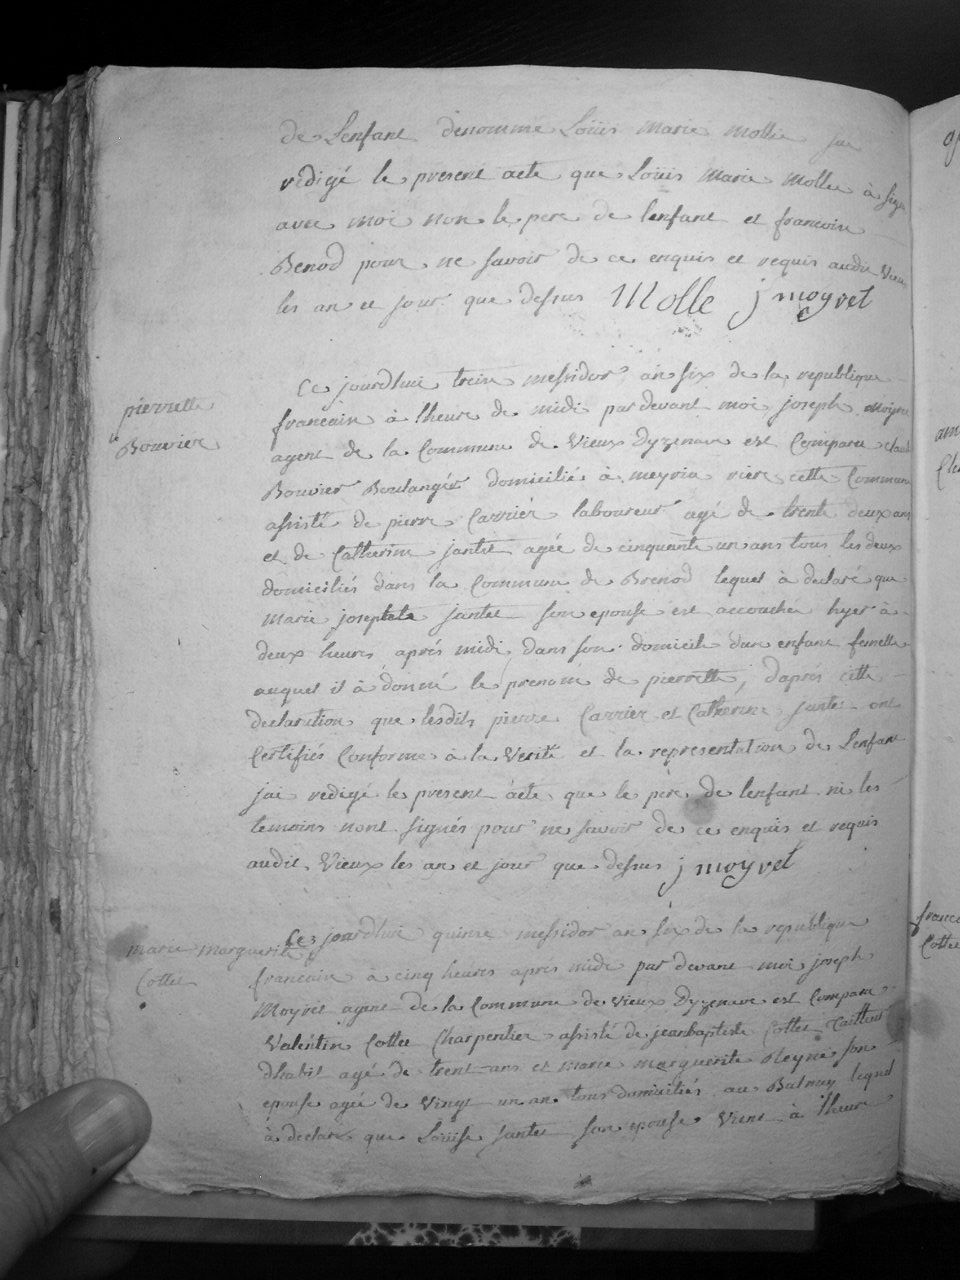 de Lenfant denommé Loüis marie mollie jai
redigé le present acte que Loüis marie mollie à signé
avec moi non le pere de lenfant et francoise
Benod pour ne savoir de ce enquis et requis audit Vieu
les an et jour que dessus Molle j moyret
pierrette
Bouvier
Ce jourdhui treize messidor an six de la republique
francaise à lheure de midi pardevant moi joseph moyret
agent de la Commune de Vieux Dyzenave est Comparu claude
Bouvier Boulanger domicilié à meyria rière cette Commune
assisté de pierre Carrier laboureur agé de trente deux ans
et de Catherine jantet agée de cinquante un ans tous les deux
domiciliés dans la Commune de Brenod lequel à declaré que
marie josephete jantet son epouse est accouchée hyer à
deux heures aprés midi dans son domicile dun enfant femelle
auquel il à donné le prenom de pierrette, daprés cette
declaration que lesdits pierre Carrier et Catherine jantet ont
Certifiés Conforme à la Verité et la representation de Lenfant
jai redigé le present acte que le pere de lenfant ni les
temoins nont signés pour ne savoir de ce enquis et requis
audit Vieux les an et jour que dessus j moyret
marie marguerite
Cottet
Ce jourdhui quinze messidor an six de la republique
francaise à cinq heures aprés midi par devant moi joseph
Moyret agent de la Commune de Vieux Dyzenave est Comparu
Valentin Cottet Charpentier assisté de jeanbaptiste Cottet Tailleur
dhabit agé de trente ans et marie marguerite Reyne son
epouse agée de Vingt un an tous domiciliés au Balmay lequel
à declaré que Loüise jantet son epouse Vient à lheure